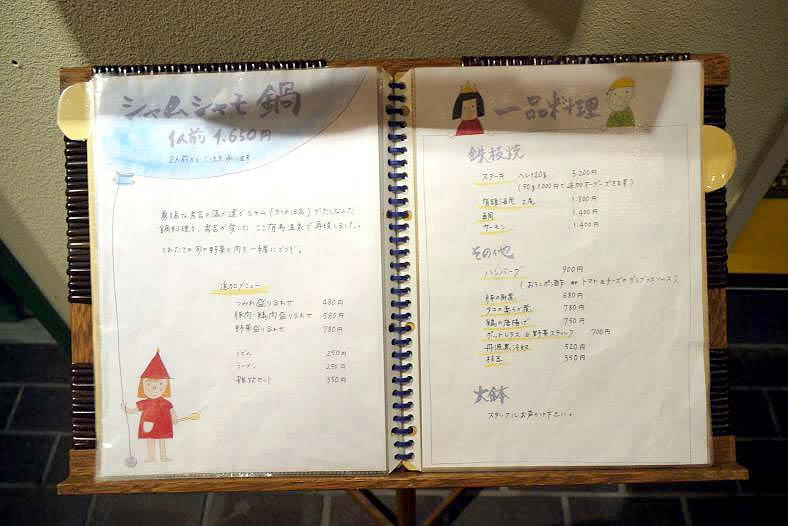 シャムシャモ鍋
1人前 1.650円
2人前から ご注文承ります
鍋料理を、秀吉が愛した ここ有馬温泉で再現しました。
とれたての旬の野菜と肉を一緒にどうぞ。
追加メニュー
つみれ盛り合わせ 480円
豚肉・鶏肉盛り合わせ 580円
野菜盛り合わせ 780円
うどん 250円
ラーメン 250円
雑炊セット 350円
一品料理
鉄板焼
ステーキ ヘレ120g 3.200円
(50g 1000円で追加オーダーできます)
有頭海老 2尾 1.800円
1.400円
サーモン 1.400円
その他
ハンバーグ 900円
(おろしポン酢 or トマト&チーズのデミグラスソース)
680円
タコの柔らか煮 780円
鶏の唐揚げ 750円
ポテトフライ & 野菜スティック 700円
丹波黒冷奴 520円
枝豆 350円
火鉢
スタッフにお声かけ下さい。